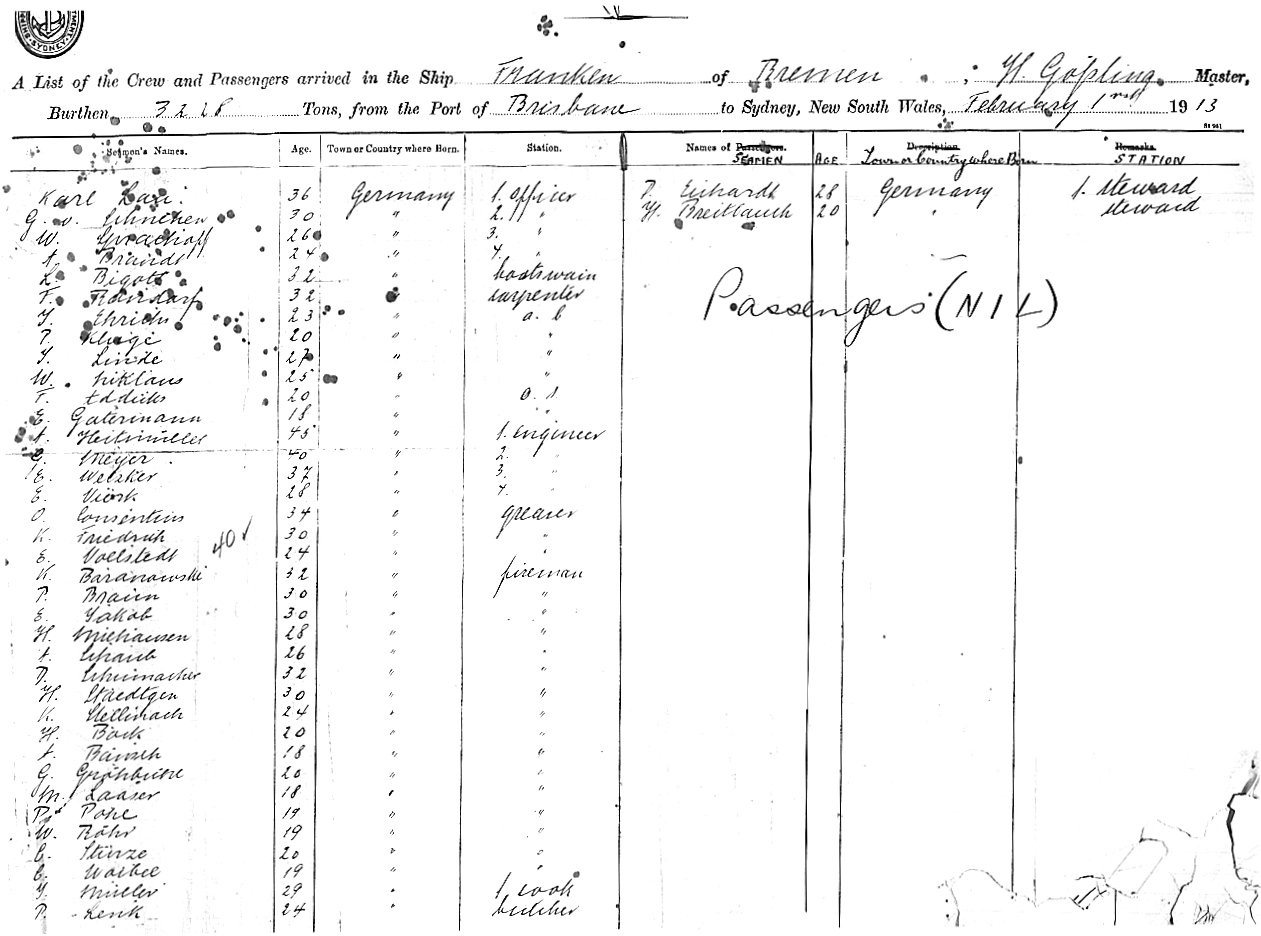 SYDNEY
A List of the Crew and Passengers arrived in the Ship Franken of Bremen, H. Gößling Master,
Burthen 3228 Tons, from the Port of Brisbane to Sydney, New South Wales, February 1 1913
Seamen's Names. Age. Town or Country where Born. Station. Names of Passengers. SEAMEN AGE Description Town or Country where Born Remarks. STATION
Karl 36 Germany 1. Officer P. 28 Germany 1. steward
G. v. 30 " 2. " H. Breitlauch 20 " steward
W. 26 " 3. "
A. Brandt 24 " 4. "
L. Bigott 32 " boatswain
F. 32 " carpenter
J. Ehrichs 23 " a. b
Passengers (NIL)
P. Kluge 20 " "
J. Linde 27 " "
W. Niklaus 25 " "
F. Eddicks 20 " o. s.
E. Gatermann 18 " "
A. Heitmüller 45 " 1. Engineer
Meyer 40 " 2. "
E. Welzker 37 " 3. "
E. 28 " 4. "
O. Consentius 34 " greaser
K. Friedrich 30 " "
40 ✓
E. Voelstedt 24 " "
K. Baranowski 32 " fireman
P. Braun 30 " "
E. Jakob 30 " "
H. 28 " "
A. Schaub 26 " "
P. Schumacher 32 " "
H. Staedtgen 30 " "
K. 24 " "
H. Bock 20 " "
A. 18 " "
G. 20 " "
M. Laaser 18 " "
P. Pope 19 " "
W. Röhr 19 " "
E. Stürze 20 " "
E. 19 " "
J. Müller 29 " 1. cook
P. Lenk 24 " butcher